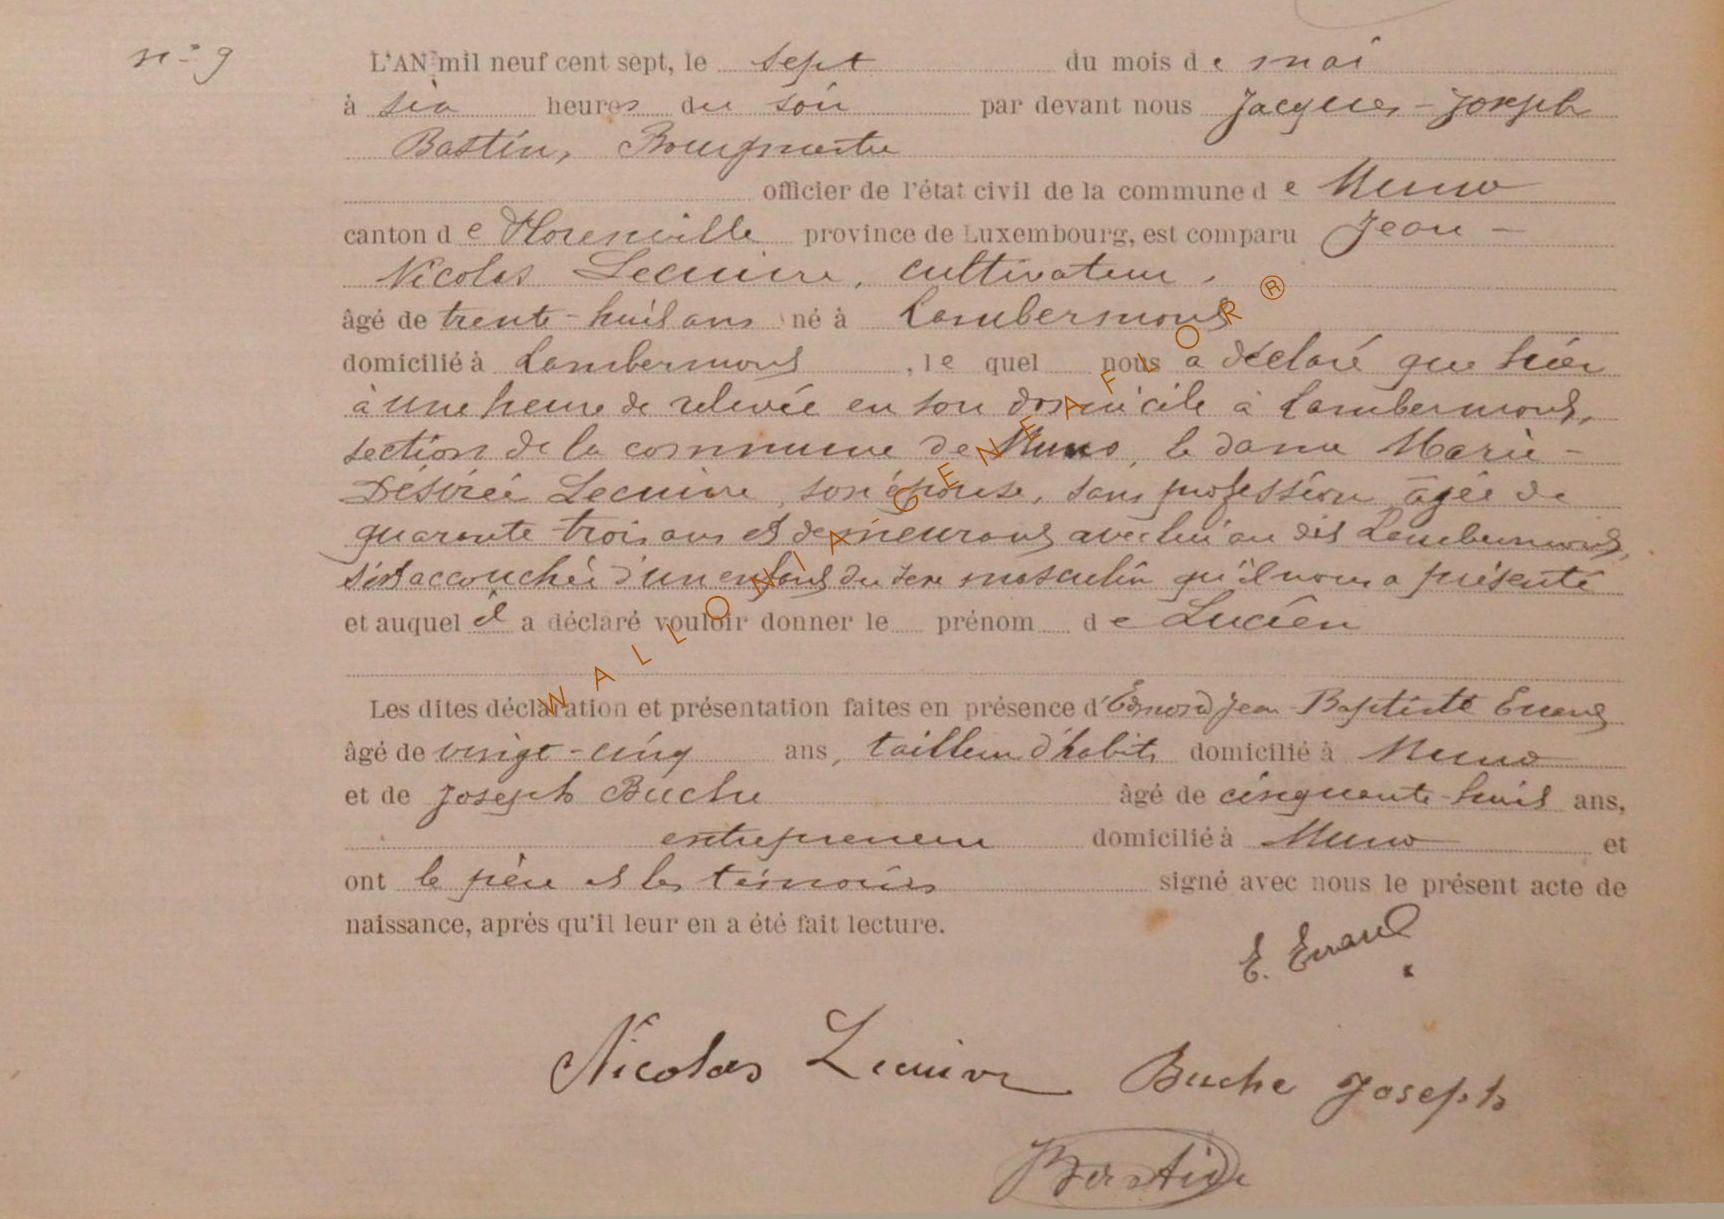 n° 9
L'AN mil neuf cent sept, le sept du mois de mai
à six heures du soir par devant nous Jacques-Joseph
Bastin, Bourgmestre
officier de l'état civil de la commune de Muno
canton de Florenville province de Luxembourg, est comparu Jean-
Nicolas Lecuivre, cultivateur,
âgé de trente-huit ans né à Lambermont
domicilié à Lambermont, le quel nous a déclaré que hier
à une heure de relevée en son domicile à Lambermont,
section de la commune de Muno, la dame Marie-
Désirée Lecuivre, son épouse, sans profession âgée de
quarante trois ans et demeurant avec lui au dit Lambermont,
s'est accouchée d'un enfant du sexe masculin qu'il nous a présenté
et auquel il a déclaré vouloir donner le prénom de Lucien
Les dites déclaration et présentation faites en présence d'Edmond Jean-Baptiste Evrard
âgé de vingt-cinq ans, tailleur d'habits domicilié à Muno
et de Joseph Buche âgé de cinquante-huit ans,
entrepreneur domicilié à Muno et
ont le père et les témoins signé avec nous le présent acte de
naissance, après qu'il leur en a été fait lecture.
E. Evrard
Nicolas Lecuivre Buche Joseph
Bastin
WALLONIA GENEAFLOR ®